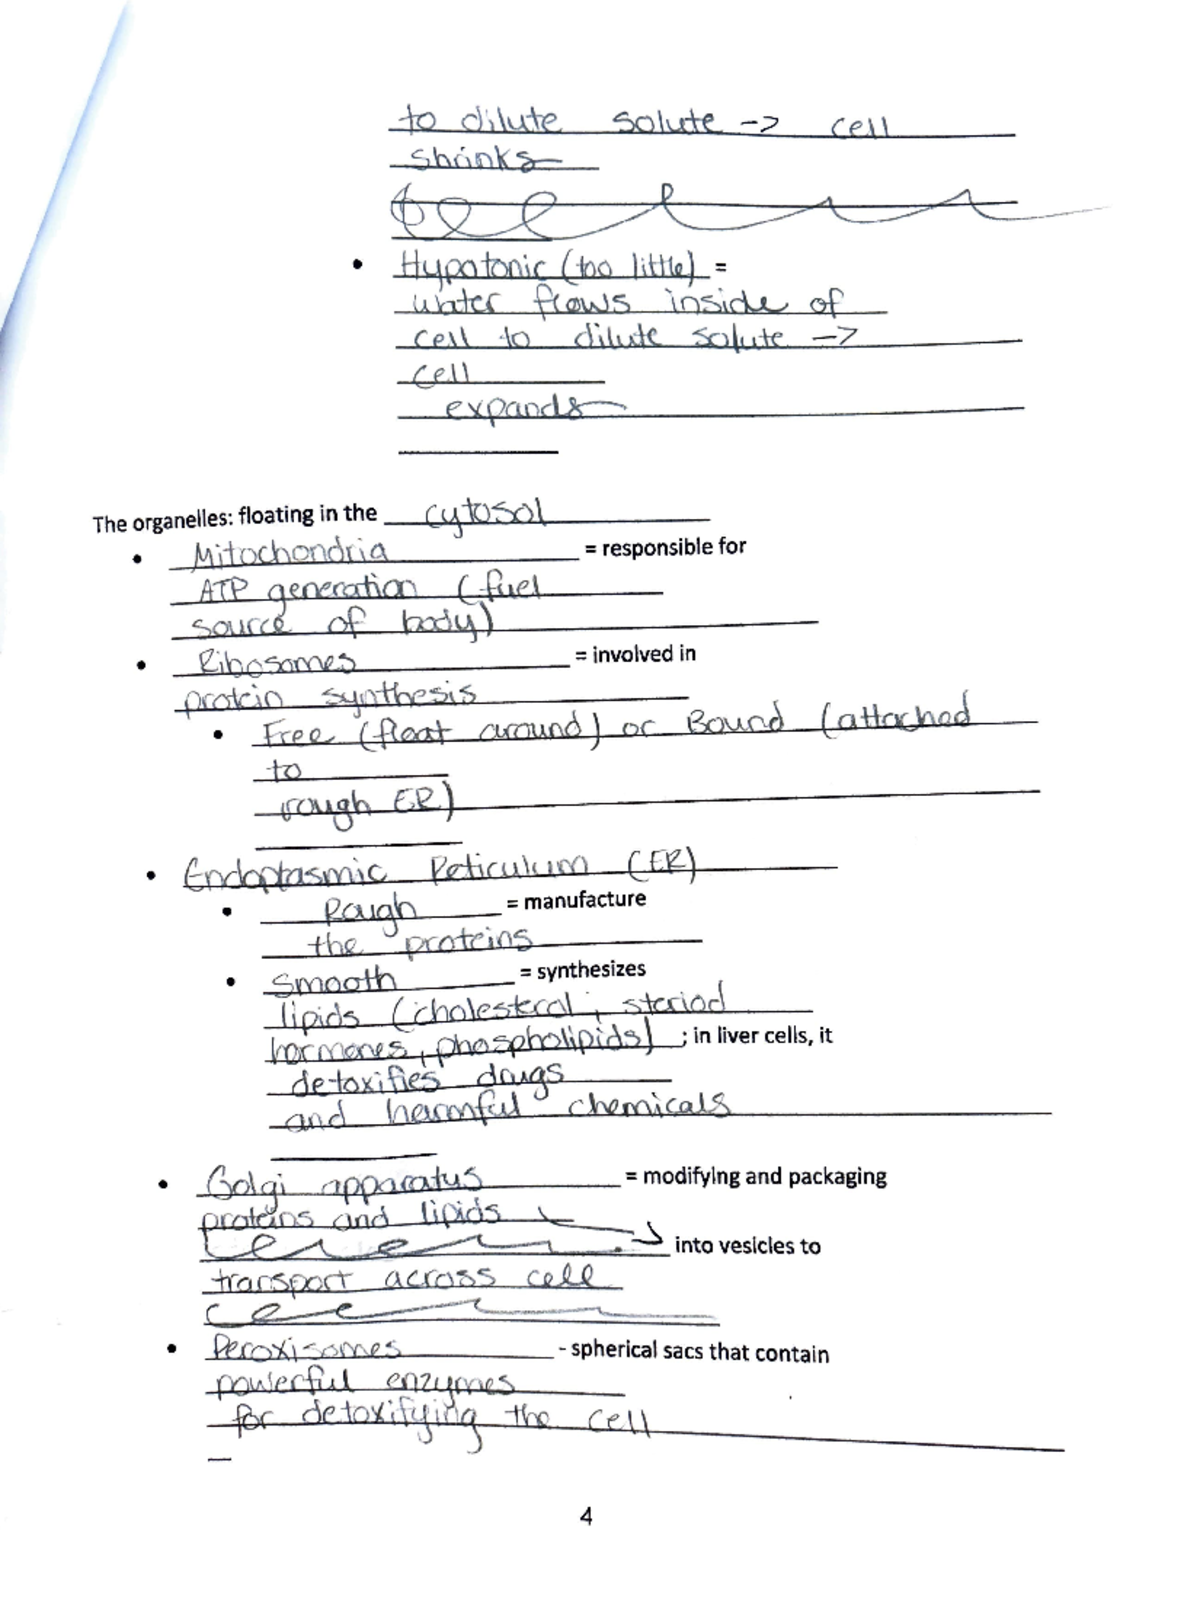 to dilute solute -> cell
shrinks
• Hypotonic (too little) =
water flows inside of
cell to dilute solute ->
cell
expands
The organelles: floating in the cytosol
• Mitochondria = responsible for
ATP generation (fuel
source of body)
• Ribosomes = involved in
protein synthesis
• Free (float around) or Bound (attached
to
rough ER)
• Endoplasmic Reticulum (ER)
• Rough = manufacture
the proteins
• Smooth = synthesizes
lipids (cholesterol, steriod
hormones, phospholipids) ; in liver cells, it
detoxifies drugs
and harmful chemicals
• Golgi apparatus = modifying and packaging
proteins and lipids
into vesicles to
transport across cell
• Peroxisomes - spherical sacs that contain
powerful enzymes
for detoxifying the cell
4